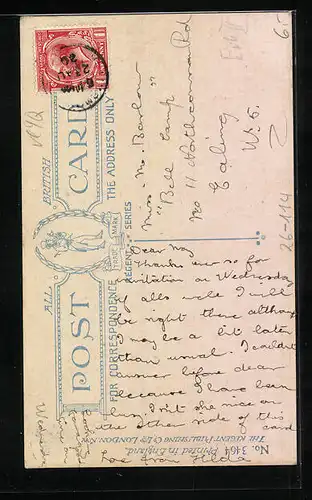 ALL BRITISH
POST CARD
TRADE MARK
"REGENT" SERIES
FOR CORRESPONDENCE
THE ADDRESS ONLY
Miss M. Barlow
"Bell Camp"
No 11 Northcommon Rd
Ealing
W. 5.
Dear May
Thanks ever so for
invitation on Wednesday
if alls well I will
be right there although
I may be a bit later
than usual. I couldn't
answer before dear
because I have been
busy. Isn't she nice on
the other side of this card
Love from Hilda
No. 3464 Printed in England.
THE REGENT PUBLISHING Co Ltd LONDON, N.W.
26-114
6.-